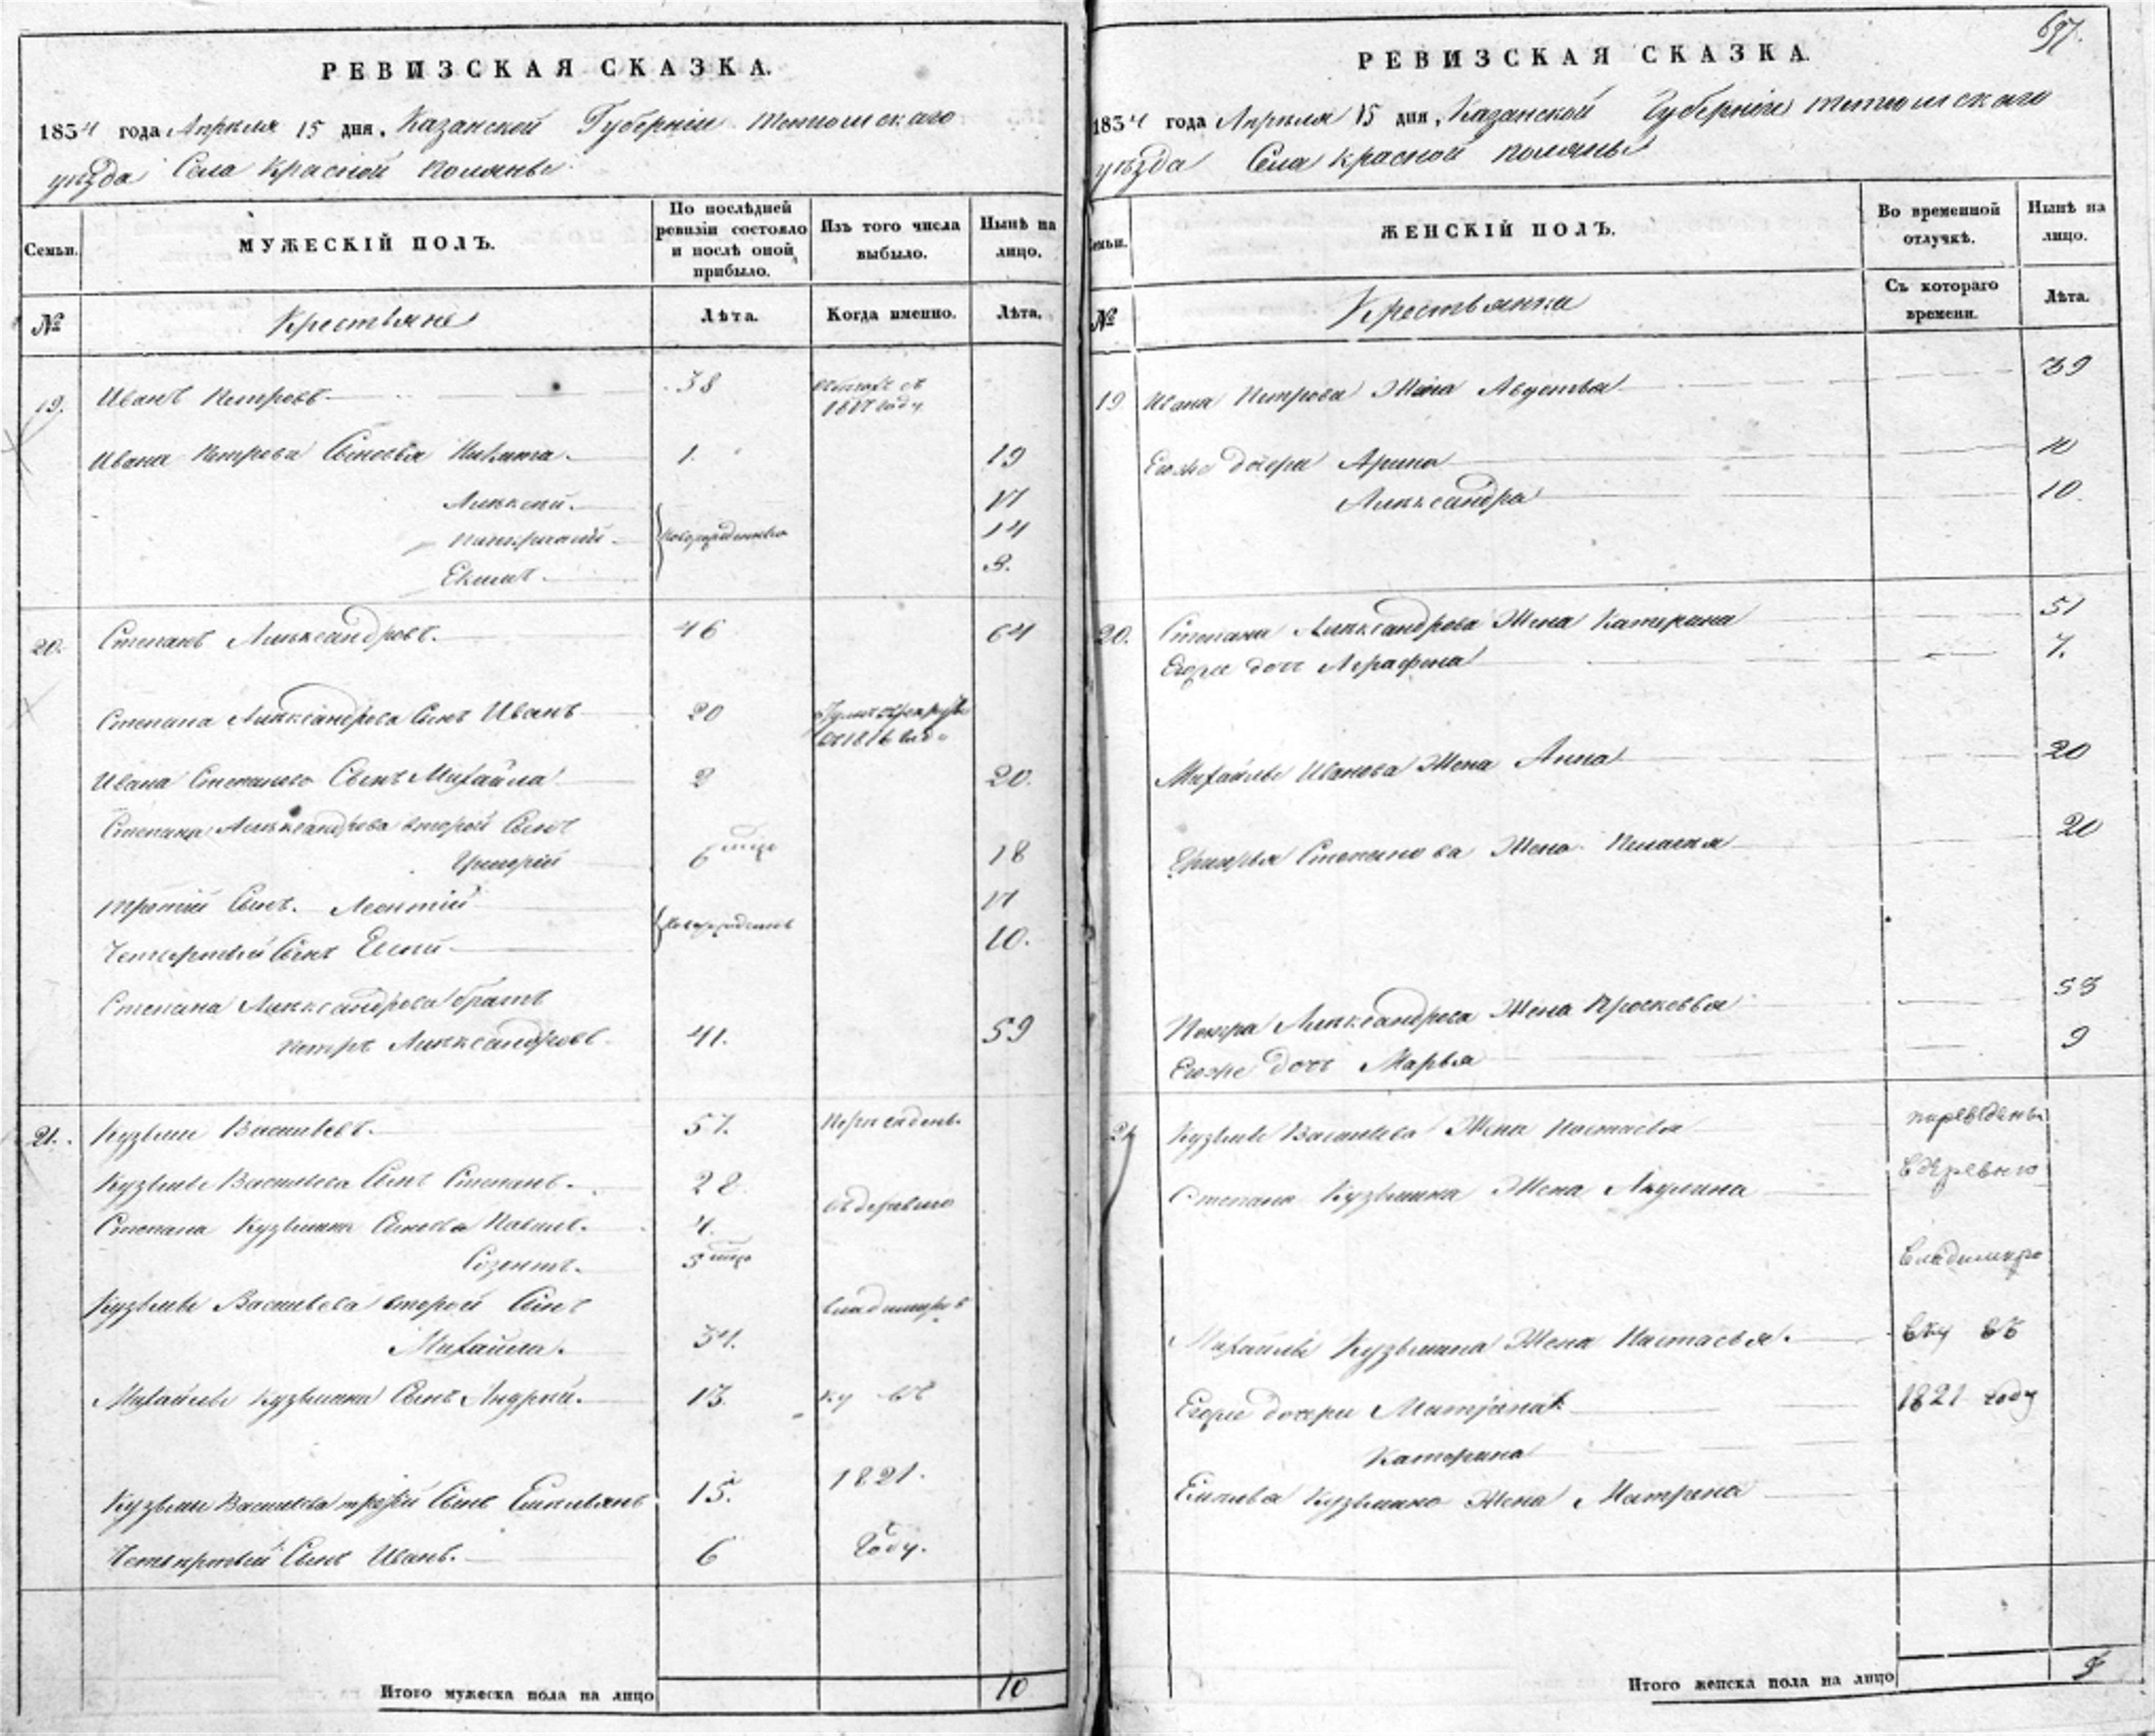 РЕВИЗСКАЯ СКАЗКА.
1834 года Апреля 15 дня, Казанской Губернии Тетюшскаго
уезда Села Красной Поляны
Семьи.
МУЖЕСКІЙ ПОЛЪ.
По послѣдней ревизіи состояло и послѣ оной прибыло.
Изъ того числа выбыло.
Нынѣ на лицо.
№
Крестьяне
Лѣта.
Когда именно.
Лѣта.
19. Иванъ Петровъ 38
1817 году
Ивана Петрова Сыновья Никита 1. 19
Алексей. 17
новорожденные 14
Екимъ. 3.
20. Степанъ Александровъ. 46 64
Степана Александрова Сынъ Иванъ 20
1816 году
Ивана Степанова Сынъ Михайла 2 20.
Степана Александрова второй Сынъ
Григорий 6 18
Третий Сынъ. Леонтий 17
новорожденные
Четвертый Сынъ 10.
Степана Александрова братъ
Петръ Александровъ 41. 59
21. Кузьма Васильевъ. 57. Переведены
Кузьмы Васильева Сынъ Степанъ. 28
въ деревню
Степана Кузьмина Сыновья Павелъ. 4.
Созонтъ. 5
Кузьмы Васильева второй Сынъ Владимиров
Михайла. 34.
Михайлы Кузьмина Сынъ Андрей. 13. ку въ
Кузьмы Васильева третий Сынъ Емельянъ 15. 1821.
Четвертый Сынъ Иванъ. 6 Году.
Итого мужеска пола на лицо 10
697.
РЕВИЗСКАЯ СКАЗКА.
1834 года Апреля 15 дня, Казанской Губернии Тетюшскаго
уезда Села Красной Поляны
Семьи.
ЖЕНСКІЙ ПОЛЪ.
Во временной отлучкѣ.
Нынѣ на лицо.
№
Крестьянки
Съ котораго времени.
Лѣта.
19 Ивана Петрова Жена Авдотья 39
Егоже дочери Арина
Александра 10.
20. Степана Александрова Жена Катерина 51
Егоже дочь Аграфена 7.
Михайлы Иванова Жена Анна 20
Григорья Степанова Жена Пелагея 20
Петра Александрова Жена Просковья 53
Егоже дочь Марья 9
21 Кузьмы Васильева Жена Настасья переведены
Степана Кузьмина Жена Акулина в деревню
Владимиро
Михайлы Кузьмина Жена Настасья. вку въ
Егоже дочери Матрена 1821 году
Катерина
Емельяна Кузьмина Жена Матрена
Итого женска пола на лицо 9